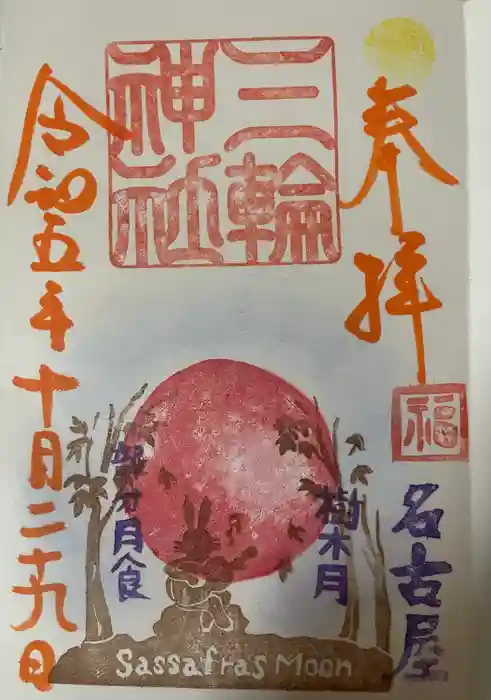 奉拝
福
名古屋
三輪神社
樹木月
部分月食
Sassafras Moon
令和五年十月二十九日